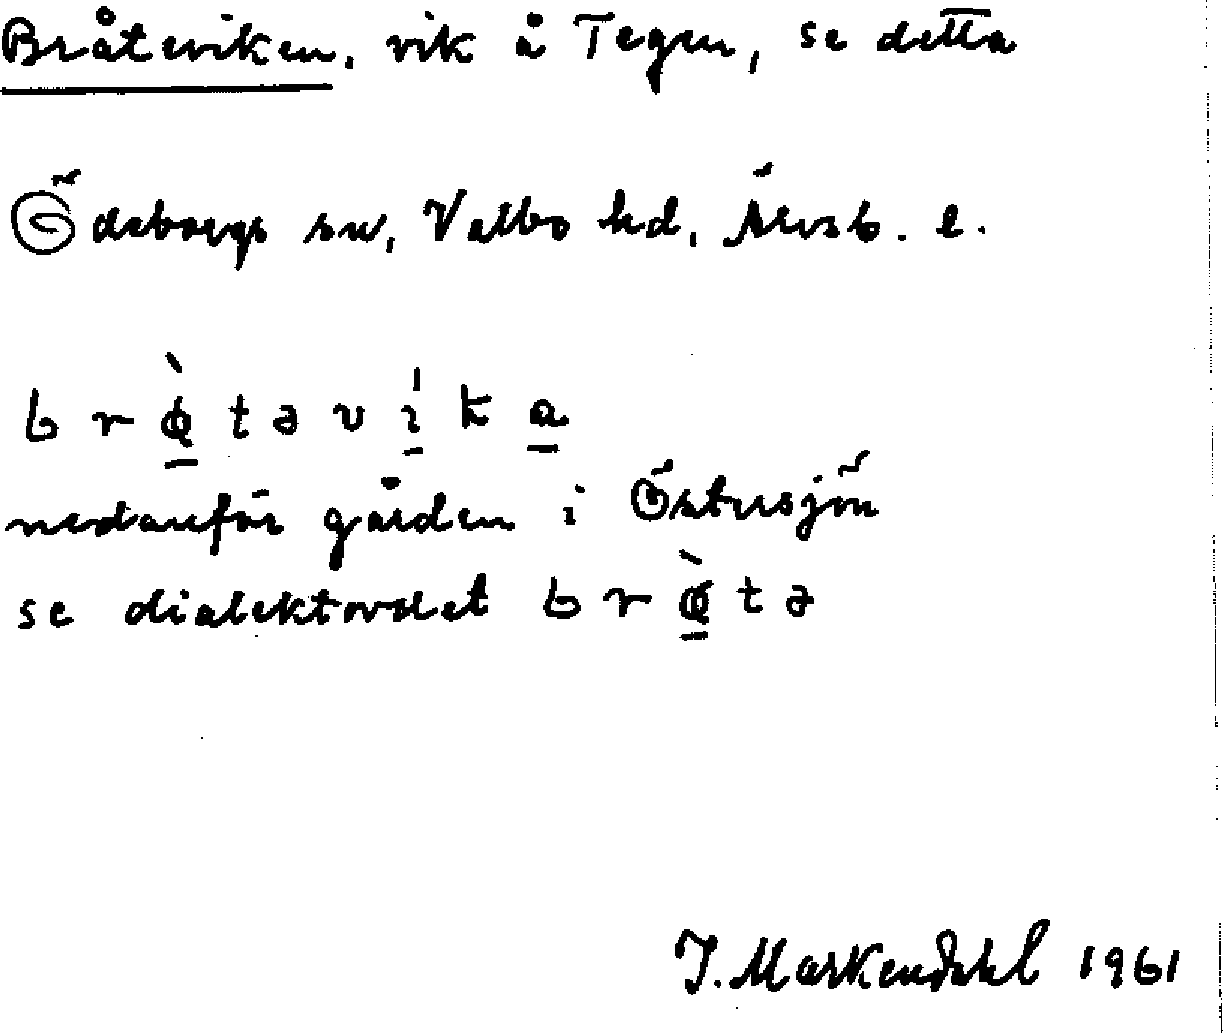 Bråteviken, vik å Tegen, se detta
Ödeborgs sn, Valbo hd, Älvsb. l.
b r ø̀ t ə v í k a
nedanför gården i Östersjön
se dialektordet b r ø̀ t ə
J. Markendahl 1961